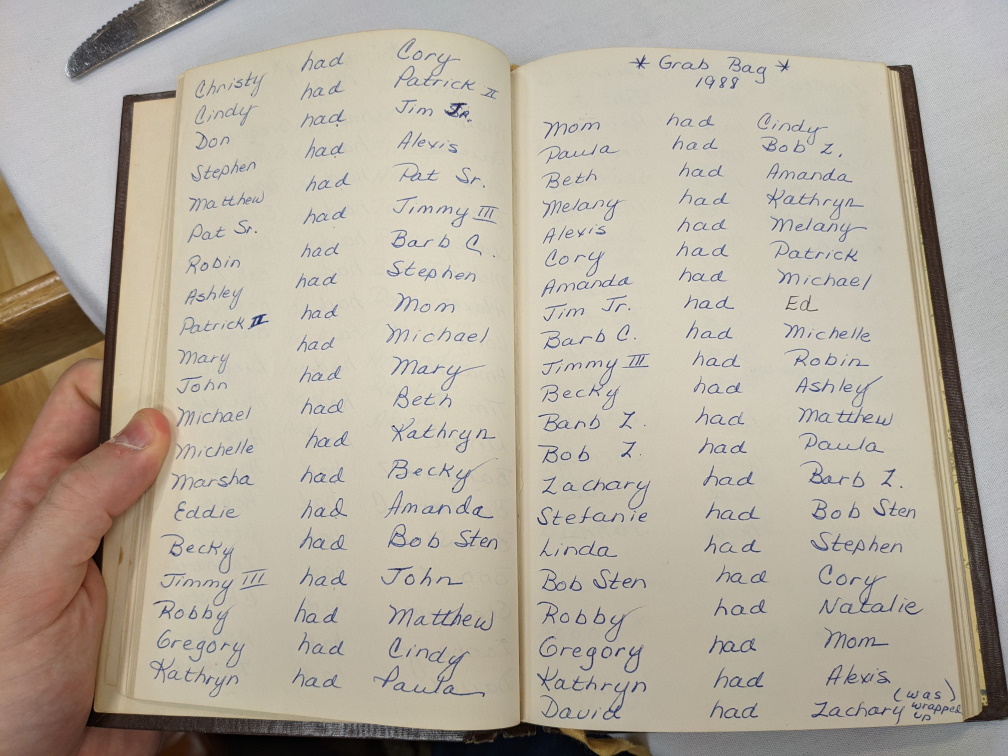 Christy had Cory
Cindy had Patrick II
Don had Jim Jr.
Stephen had Alexis
Matthew had Pat Sr.
Pat Sr. had Jimmy III
Robin had Barb C.
Ashley had Stephen
Patrick II had Mom
Mary had Michael
John had Mary
Michael had Beth
Michelle had Kathryn
Marsha had Becky
Eddie had Amanda
Becky had Bob Sten
Jimmy III had John
Robby had Matthew
Gregory had Cindy
Kathryn had Paula
* Grab Bag *
1988
Mom had Cindy
Paula had Bob Z.
Beth had Amanda
Melany had Kathryn
Alexis had Melany
Cory had Patrick
Amanda had Michael
Jim Jr. had Ed
Barb C. had Michelle
Jimmy III had Robin
Becky had Ashley
Barb Z. had Matthew
Bob Z. had Paula
Zachary had Barb Z.
Stefanie had Bob Sten
Linda had Stephen
Bob Sten had Cory
Robby had Natalie
Gregory had Mom
Kathryn had Alexis
David had Zachary (was) wrapped up